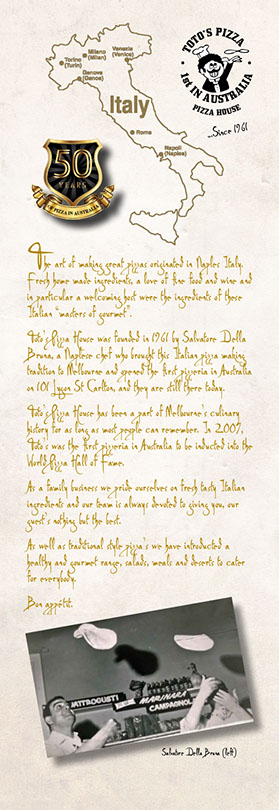 TOTO'S PIZZA
1st IN AUSTRALIA
PIZZA HOUSE
...Since 1961
Torino
(Turin)
Milano
(Milan)
Venezia
(Venice)
Genova
(Genoa)
Italy
Rome
Napoli
(Naples)
50
YEARS
OF PIZZA IN AUSTRALIA
The art of making great pizzas originated in Naples Italy.
Fresh home made ingredients, a love of fine food and wine and
in particular a welcoming host were the ingredients of these
Italian "masters of gourmet".
Toto's Pizza House was founded in 1961 by Salvatore Della
Bruna, a Napletese chef who brought this Italian pizza making
tradition to Melbourne and opened the first pizzeria in Australia
on 101 Lygon St Carlton, and they are still there today.
Toto's Pizza House has been a part of Melbourne's culinary
history for as long as most people can remember. In 2007,
Toto's was the first pizzeria in Australia to be inducted into the
World Pizza Hall of Fame.
As a family business we pride ourselves on fresh tasty Italian
ingredients and our team is always devoted to giving you, our
guest's nothing but the best.
As well as traditional style pizza's we have introduced a
healthy and gourmet range, salads, meals and deserts to cater
for everybody.
Bon appétit.
MITROGUSTI
MARINARA
CAMPAGNOL
Salvatore Della Bruna (left)